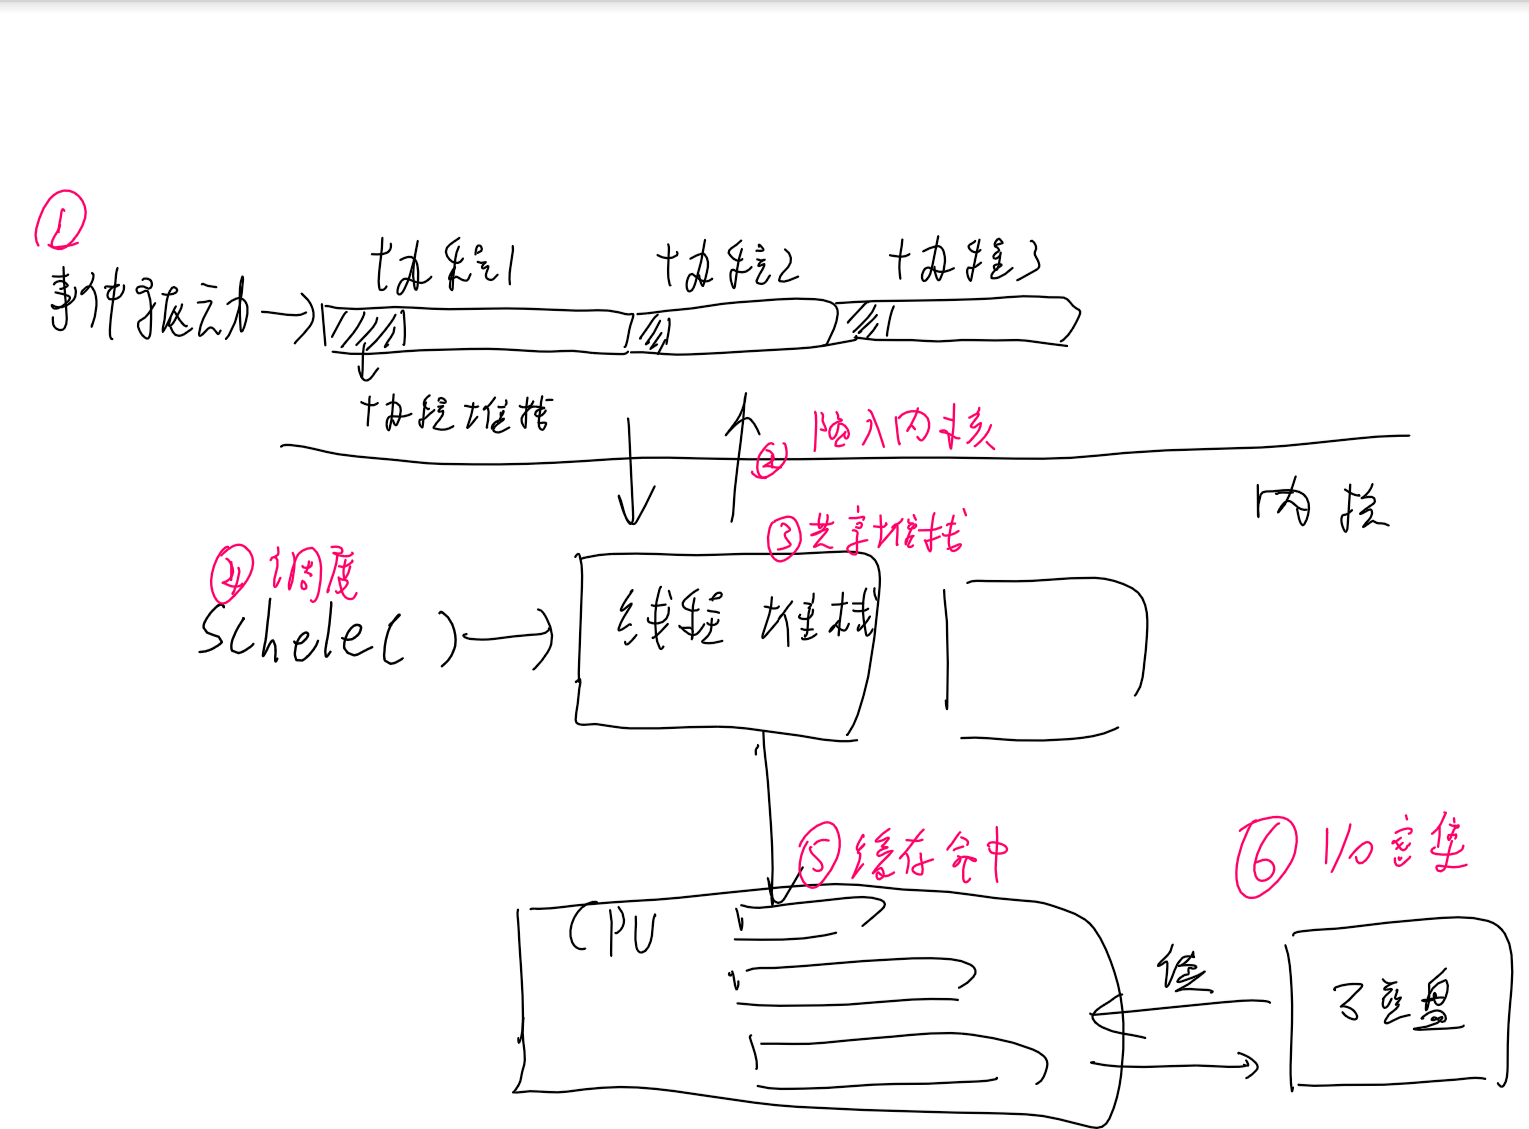 ①
协程1 协程2 协程3
事件驱动
协程堆栈
② 陷入内核
内核
③共享堆栈
④调度
Schele()
线程 堆栈
⑤缓存命中
⑥ I/O密集
CPU
磁盘